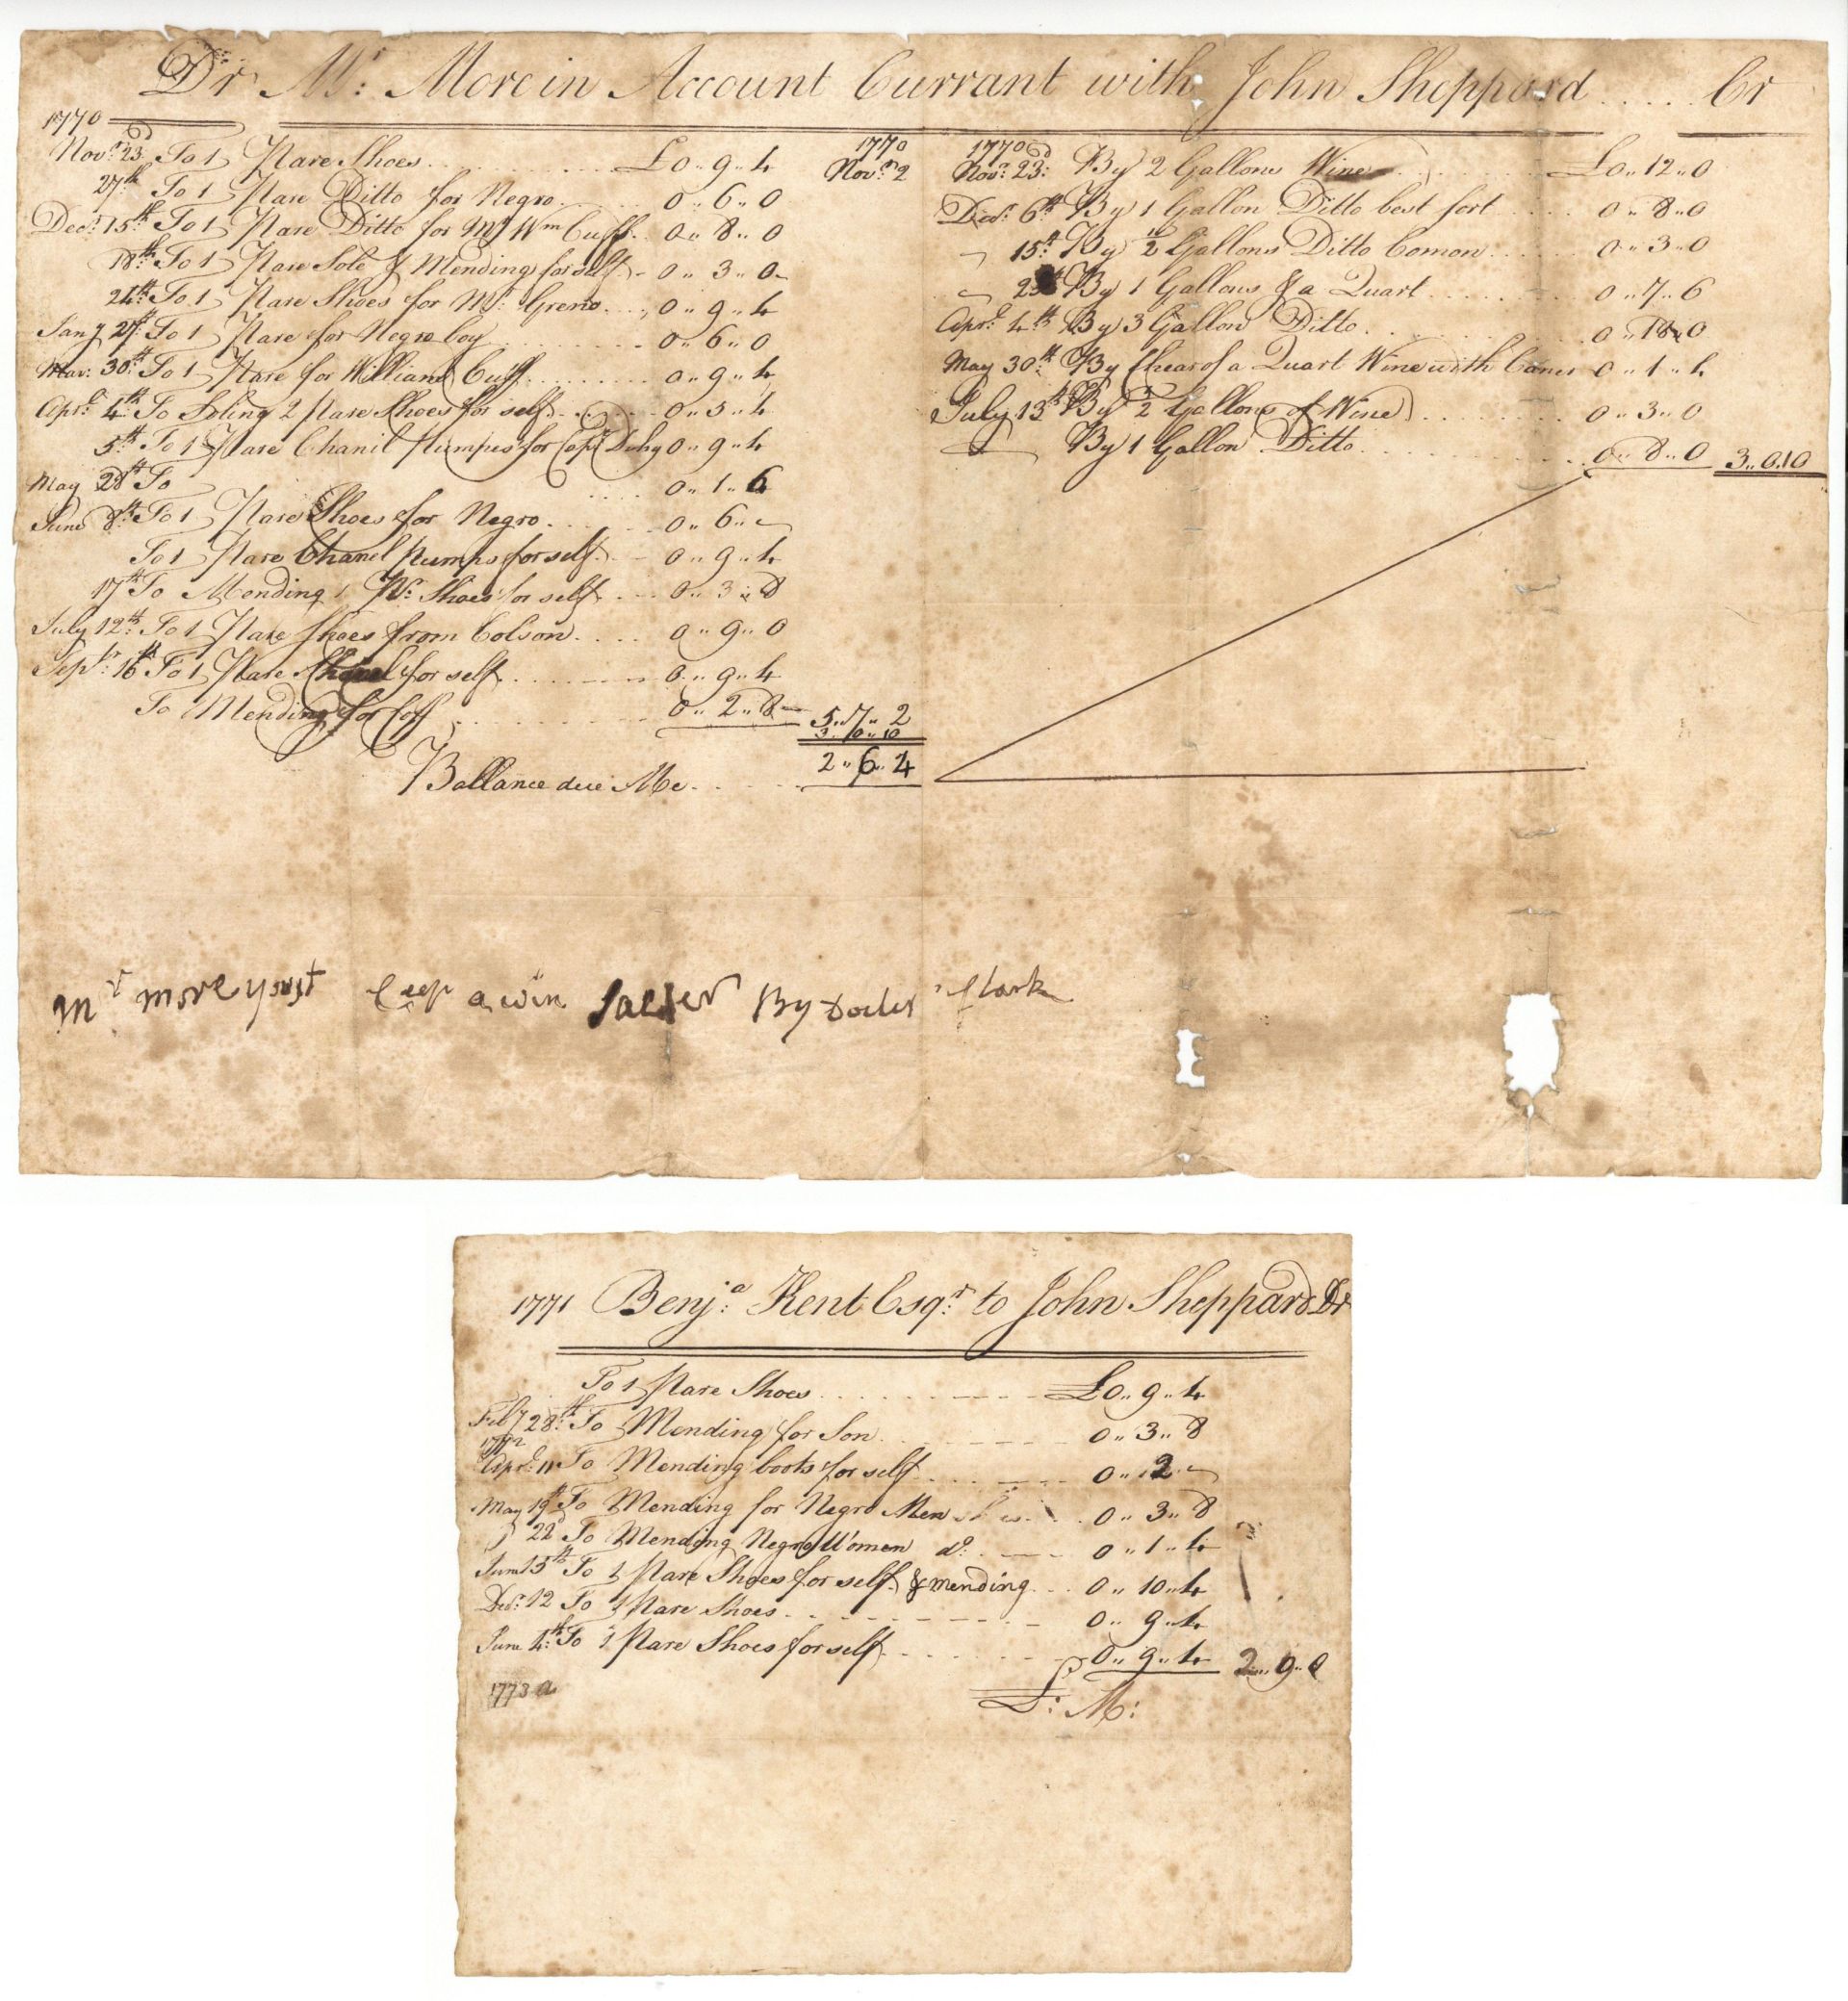 Dr Mr: More in Account Currant with John Sheppard ..... Cr
1770
Novr: 23d To 1 Pare Shoes £0..9..4
27th To 1 Pare Ditto for Negro 0..6..0
Decr: 15th To 1 Pare Ditto for Mr Wm Cuff 0..8..0
18th To 1 Pare Sole & Mending for self 0..3..0
24th: To 1 Pare Shoes for Mr: Greno 0..9..4
Jany 27th: To 1 Pare for Negro boy 0..6..0
Mar: 30th To 1 Pare for William Cuff 0..9..4
Aprl: 4th To Soling 2 pare Shoes for self 0..5..4
5th To 1 Pare Chanil Pumps for Capt 0..9..4
May 28th To 0..1..6
June 8th To 1 Pare Shoes for Negro 0..6..
To 1 Pare Chanel Pumps for self 0..9..4
17th To Mending 1 Pr: Shoes for self 0..3..8
July 12th: To 1 Pare Shoes from Colson 0..9..0
Sepr: 16th To 1 Pare for self 0..9..4
To Mending for Coff 0..2..8 5..7..2
3..0..10
Ballance due Me 2..6..4
1770
Novr: 2
1770
Novr: 23d: By 2 Gallons Wine £0..12..0
Decr: 6th By 1 Gallon Ditto best sort 0..8..0
15th: By 1/2 Gallons Ditto Comon 0..3..0
By 1 Gallons & a Quart 0..7..6
Aprl: 4th By 3 Gallons Ditto 0..18..0
May 30th By Shear of a Quart Wine with 0..1..4
July 13th By 1/2 Gallons of Wine 0..3..0
By 1 Gallon Ditto 0..8..0 3..0..10
Mr more a By Clark
1771 Benja: Kent Esqr: to John Sheppard Dr
To 1 Pare Shoes £0..9..4
Feby 28th: To Mending for Son 0..3..8
1772
Aprl: 11 To Mending boots for self 0..2..
May 19th To Mending for Negro Men 0..3..8
22d To Mending Negro Women do: 0..1..4
June 15th To 1 Pare Shoes for self & mending 0..10..4
Decr: 12 To 1 Pare Shoes 0..9..4
June 4th: To 1 Pare Shoes for self 0..9..4 2..9..0
1773
L: M: